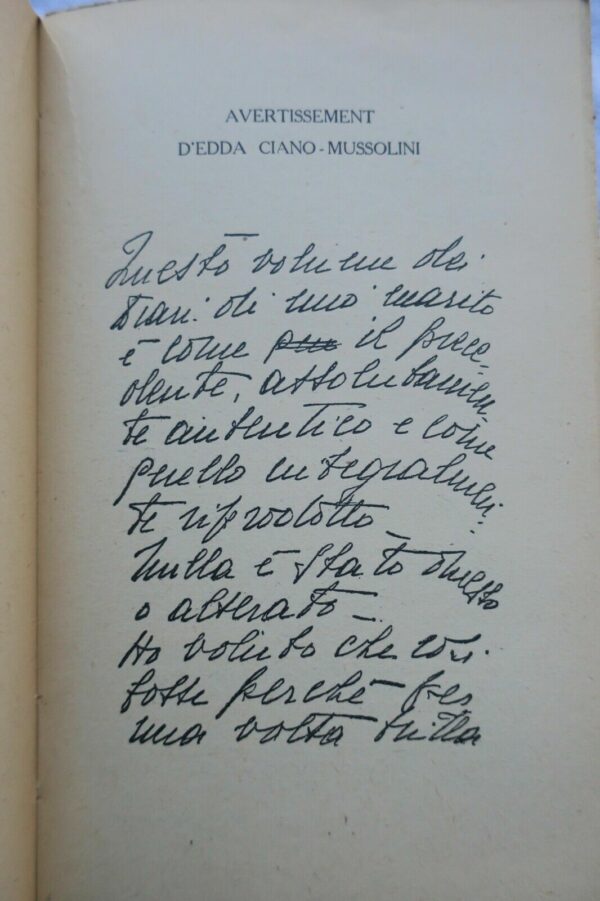 AVERTISSEMENT
D'EDDA CIANO-MUSSOLINI
Questo volume dei
Diari di mio marito
è come il prece-
dente, assolutamen-
te autentico e come
quello integralmen-
te riprodotto_
Nulla è stato omesso
o alterato_
Ho voluto che così
fosse perché per
una volta tutta